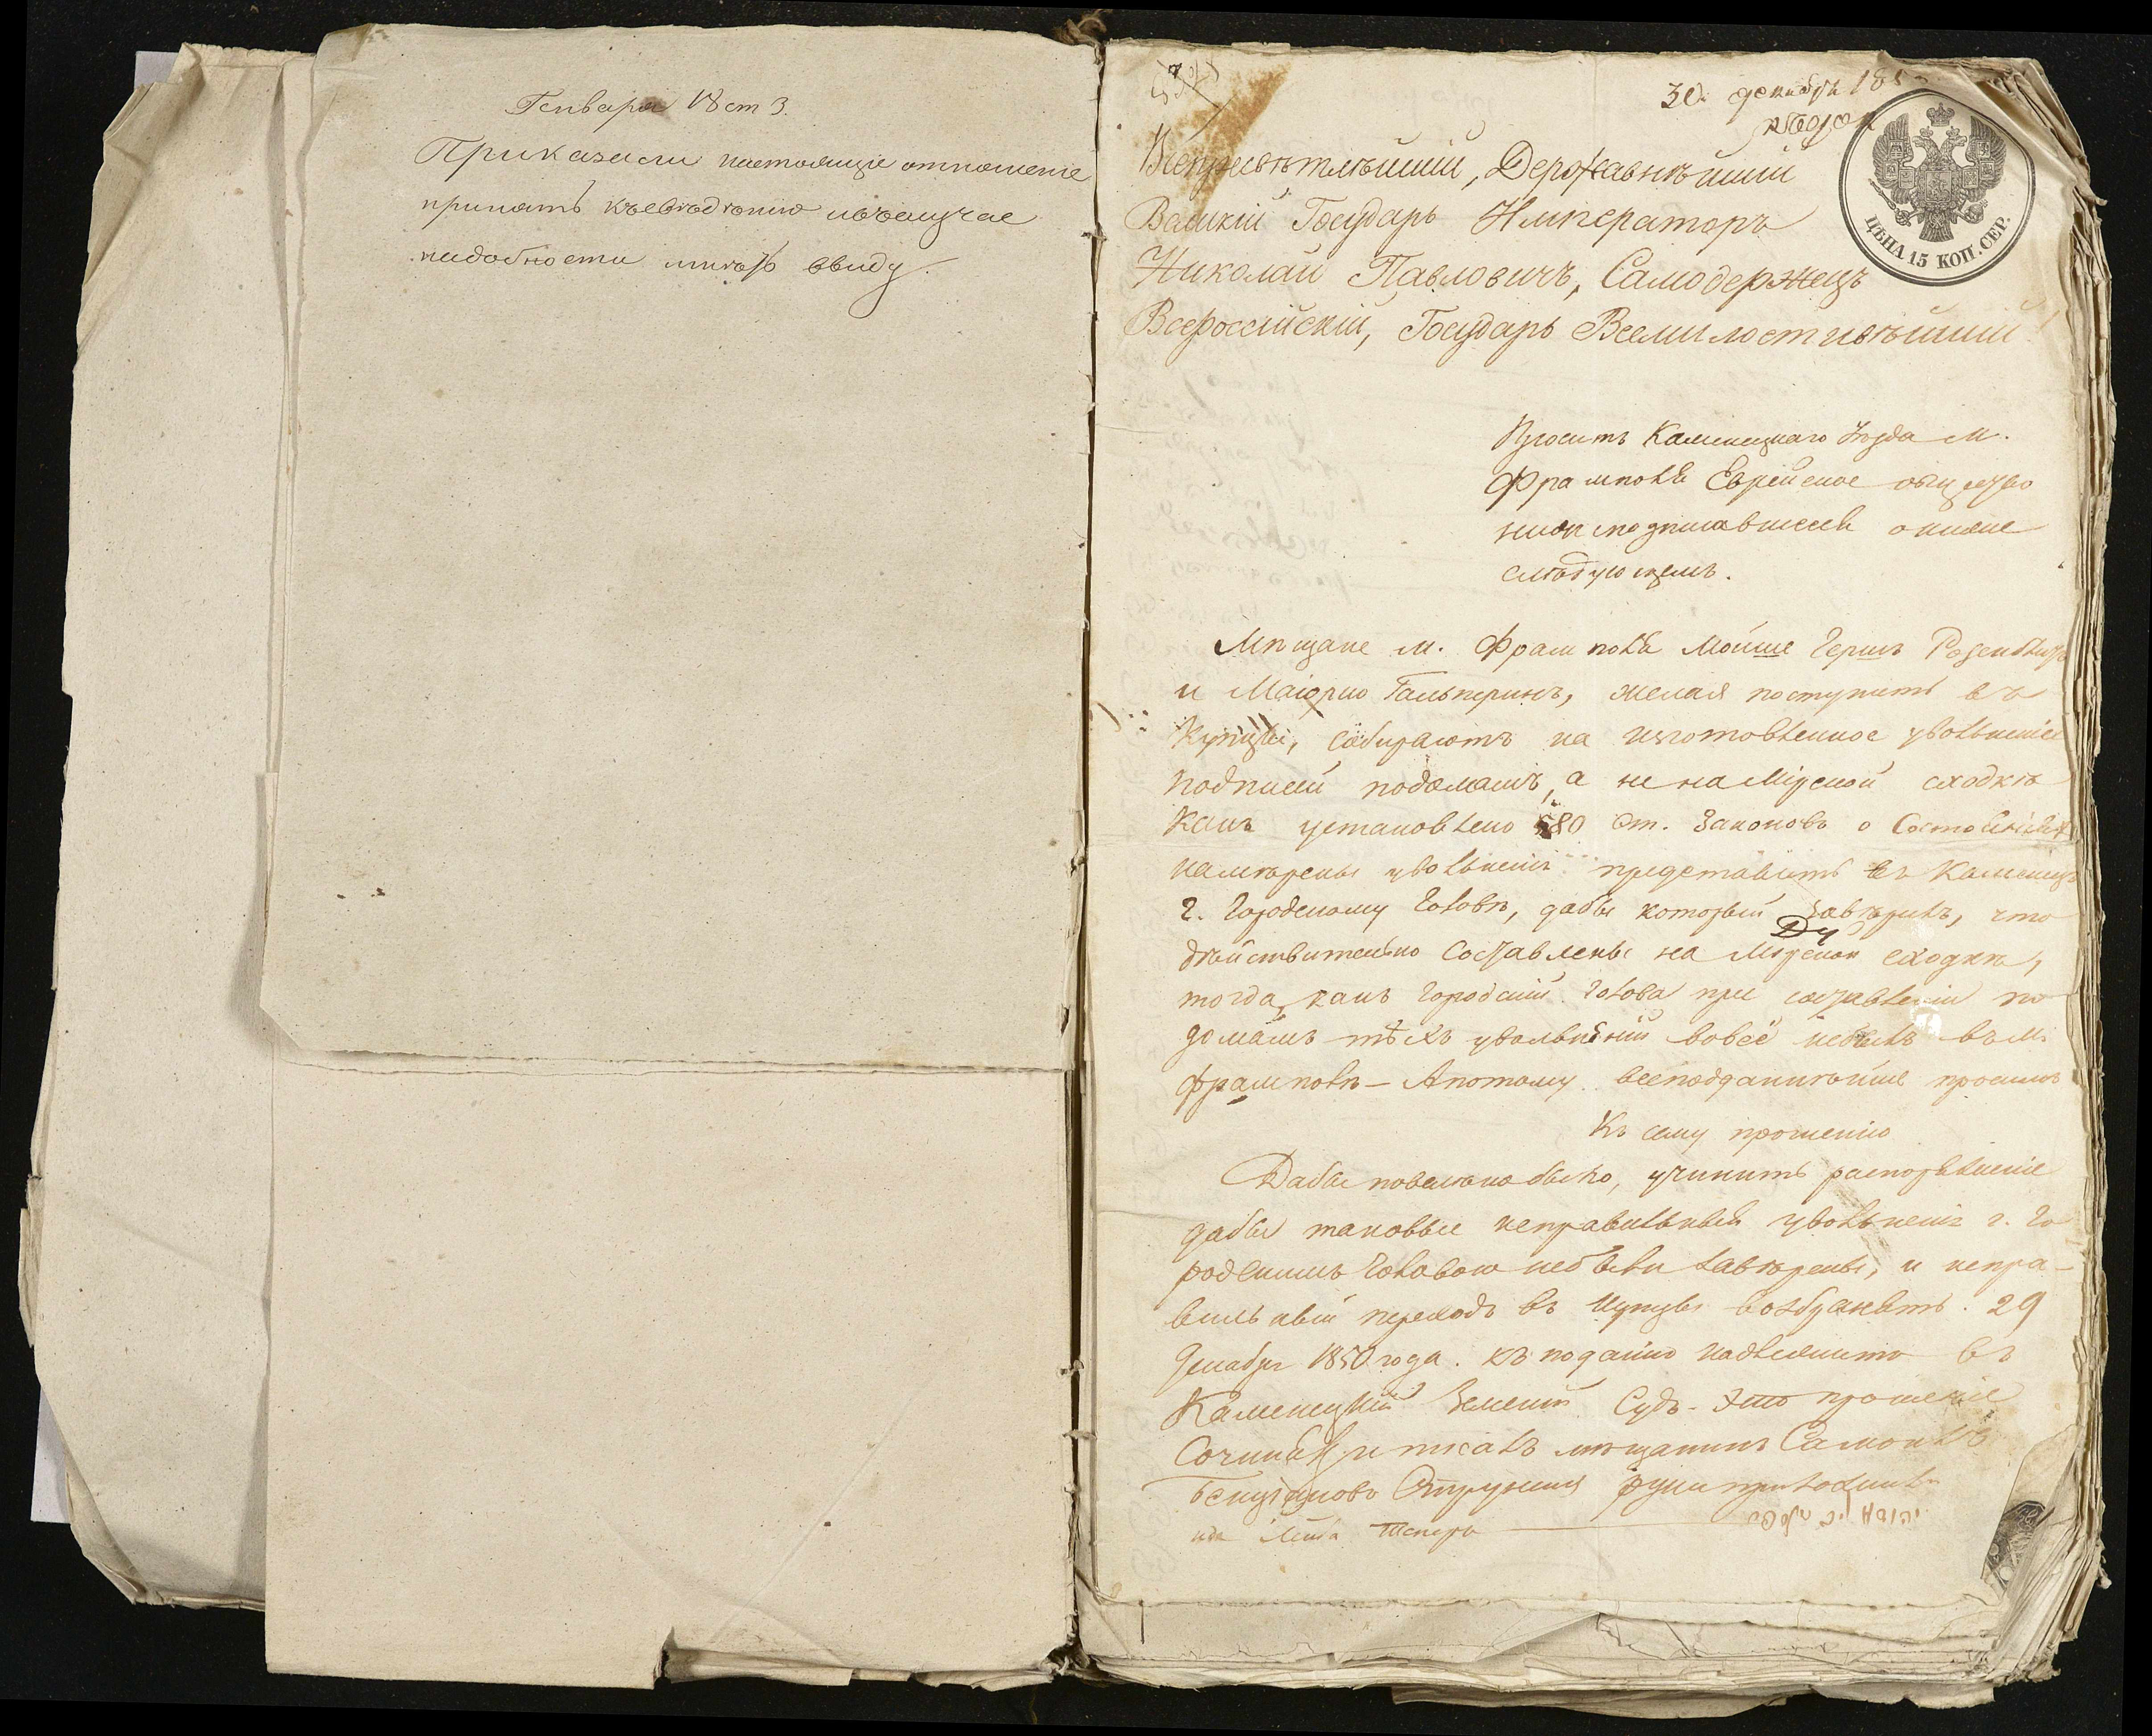 Генваря 18 ст 3.
Приказали настоящие отношение
принять къ сведению и въ случае
надобности иметь ввиду.
30 декабря 185
Всепресвѣтлѣйшій, Державнѣйшій
Великій Государь Императоръ
Николай Павловичъ, Самодержецъ
Всероссійскій, Государь Всемилостивѣйшій!
ЦѢНА 15 КОП. СЕР.
Просить Каменецкаго Уѣзда м.
Фрамполя Еврейское общество
ниже подписавшееся о нижеслѣдующемъ.
Мѣщане м. Фрамполя Мойше Гершъ
и Гальперинъ, желая поступить въ
Купцы, собираютъ на изготовленное увольненіе
подписей подомамъ, а не на Мірской сходкѣ
какъ установлено 580 Ст. Законовъ о Состояніяхъ
намѣрены увольненія представить въ Каменецъ
г. Городскому Головѣ, дабы который завѣрилъ, что
дѣйствительно составлены на Мірской сходкѣ,
тогда какъ Городскій Голова при составленіи по
домамъ тѣхъ увольненій вовсе небылъ въ м.
Фрамполѣ — Апотому всеподданнѣйше просимъ
Къ сему прошенію
Дабы повелѣно было, учинить распоряженіе
дабы таковые неправильныя увольненія г. Го
родскимъ Головою небыли завѣрены, и непра-
вильный переходъ въ Купцы возбранять. 29
Декабря 1850 года. Къ поданію надлежитъ въ
Каменецкій Земскій Судъ. Это прошеніе
Сочинялъ и писалъ мѣщанинъ
руки приложили